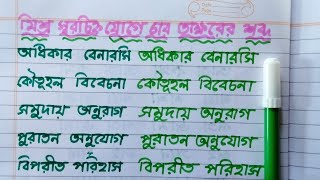 মিশ্র স্বরচিহ্ন যোগে চার অক্ষরের শব্দ
অধিকার বেনারসি অধিকার বেনারসি
কৌতূহল বিবেচনা কৌতূহল বিবেচনা
সমুদায় অনুরাগ সমুদায় অনুরাগ
পুরাতন অনুযোগ পুরাতন অনুযোগ
বিপরীত পরিহাস বিপরীত পরিহাস